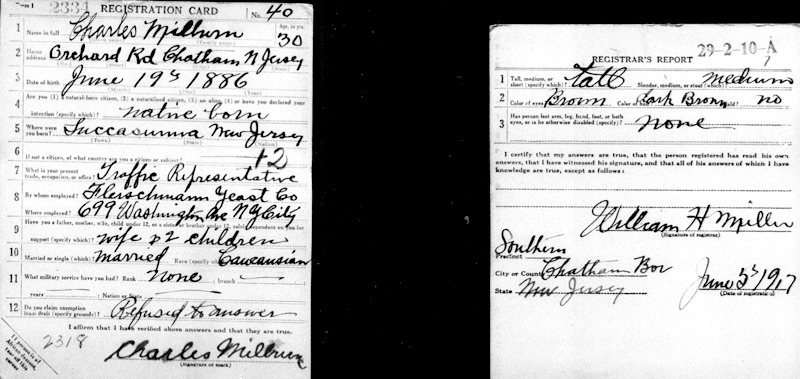 Form 1 2334 REGISTRATION CARD No. 40
1 Name in full Charles Milburn Age, in yrs. 30
2 Home address Orchard Rd Chatham N Jersey
3 Date of birth June 19th 1886
4 Are you (1) a natural-born citizen, (2) a naturalized citizen, (3) an alien, (4) or have you declared your
intention (specify which)? native born
5 Where were you born? Succasunna New Jersey
6 If not a citizen, of what country are you a citizen or subject? 12
7 What is your present trade, occupation, or office? Traffic Representative
8 By whom employed? Fleischmann Yeast Co
Where employed? 699 Washington Ave N Y City
9 Have you a father, mother, wife, child under 12, or a sister or brother under 12, solely dependent on you for
support (specify which)? wife & 2 children
10 Married or single (which)? Married Race (specify which)? Caucausian
11 What military service have you had? Rank none branch
years Nation or State
12 Do you claim exemption from draft (specify grounds)? Refused to answer
I affirm that I have verified above answers and that they are true.
2318
Charles Milburn
(Signature or mark)
If person is of African descent, tear off this corner
REGISTRAR'S REPORT 29-2-10-A
1 Tall, medium, or short (specify which)? Tall Slender, medium, or stout (which)? medium
2 Color of eyes Brown Color of Dark Brown Bald? no
3 Has person lost arm, leg, hand, foot, or both eyes, or is he otherwise disabled (specify)? none
I certify that my answers are true, that the person registered has read his own
answers, that I have witnessed his signature, and that all of his answers of which I have
knowledge are true, except as follows:
William H Miller
(Signature of registrar)
Southern
Precinct
City or County Chatham Bor
State New Jersey June 5th 1917
(Date of registration)